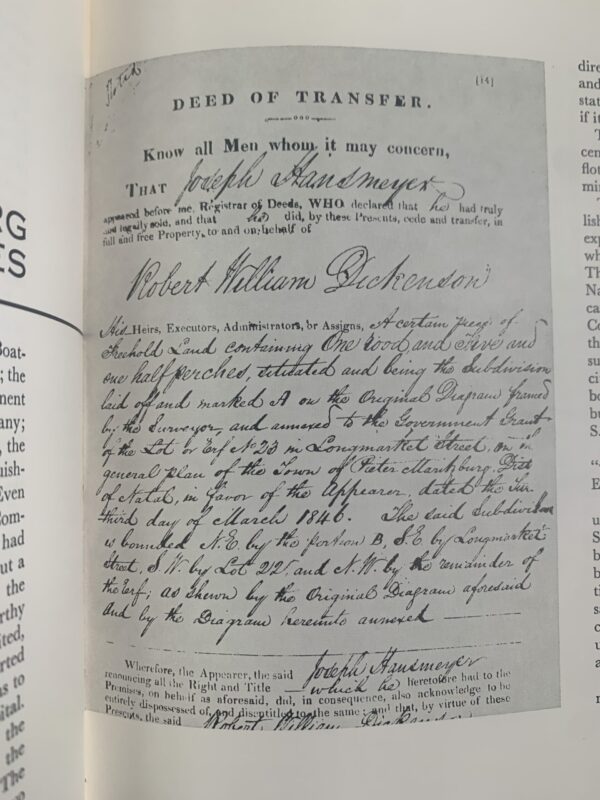 [14]
DEED OF TRANSFER.
Know all Men whom it may concern,
THAT Joseph Hansmeyer
appeared before me, Registrar of Deeds, WHO declared that he had truly
and legally sold, and that he did, by these Presents, cede and transfer, in
full and free Property, to and on behalf of
Robert William Dickenson
His Heirs, Executors, Administrators, or Assigns, A certain piece of
Freehold Land containing One rood and Five and
one half perches, situated and being the Subdivision
laid off and marked A on the Original Diagram framed
by the Surveyor, and annexed to the Government Grant
of the Lot or Erf No 23 in Longmarket Street, on
general plan of the Town of Pieter Maritzburg. Dist
of Natal, in favor of the Appearer, dated the
third day of March 1846. The said Subdivision
is bounded N.E. by the portion B, S.E by Longmarket
Street, S.W. by Lot 22, and N.W. by the remainder of
the Erf; as shewn by the Original Diagram aforesaid
and by the Diagram hereunto annexed
Wherefore, the Appearer, the said Joseph Hansmeyer
renouncing all the Right and Title which he heretofore had to the
Premises, on behalf as aforesaid, did, in consequence, also acknowledge to be
entirely dispossessed of, and disentitled to the same; and that, by virtue of these
Presents, the said Robert William Dickenson
RG
ES
Boat-
; the
ment
any;
, the
uish-
Even
Com-
had
out a
the
rthy
ited,
orted
as to
ital.
the
the
The
dire
and
stat
if it
T
cen
flot
min
T
lish
exp
wh
Th
Na
ca
Co
th
su
ci
bo
bu
S.
E
u
S
b
b
ti
s
c
u
a